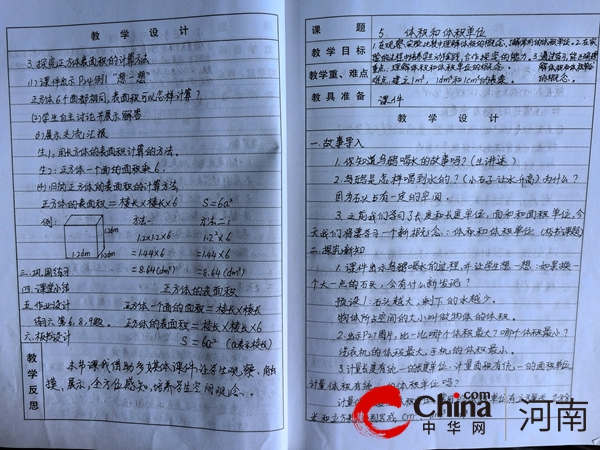 教学设计
3. 探究正方体表面积的计算方法
(1) 课件出示P24例1 "想一想"
正方体6个面都相同,表面积可以怎样计算?
(2) 学生自主讨论并展示解答
(3) 展示交流汇报
生1: 用长方体的表面积计算的方法。
生2: 正方体一个面的面积乘6。
(4) 归纳正方体的表面积的计算方法
正方体的表面积 = 棱长×棱长×6 S=6a²
例: 方法一: 方法二:
1.2dm
1.2dm 1.2dm
1.2×1.2×6 1.2²×6
=1.44×6 =1.44×6
=8.64(dm²) =8.64(dm²)
三. 巩固练习
四. 课堂小结 正方体的表面积
五. 作业设计 正方体一个面的面积 = 棱长×棱长
第6.8.9题. 正方体的表面积 = 棱长×棱长×6
六. 板书设计 S = 6a² (a表示棱长)
教学反思
本节课我借助多媒体课件让学生观察、触
摸、展示,全方位感知,培养学生空间观念。
课题 5 体积和体积单位
教学目标
教学重、难点
1m³, 1dm³和1cm³的表象.
教具准备 课件
教学设计
一. 故事导入
1. 你知道乌鸦喝水的故事吗?(生讲述)
2. 乌鸦是怎样喝到水的?(小石子让水升高) 为什么?
因为石头占有一定的空间.
3. 之前我们学习了长度和长度单位,面积和面积单位,今
天我们将要学习一个新的概念:体积和体积单位 (板书课题)
二. 探究新知
1. 课件出示乌鸦喝水的过程,并让学生想一想:如果换一
个大一点的石头,会有什么新发现?
预设1: 石头越大,剩下的水越少.
物体所占空间的大小叫做物体的体积.
2. 出示P27图片,比一比哪个体积最大?哪个体积最小?
洗衣机的体积最大,手机的体积最小.
3. 计量长度有统一的长度单位,计量面积有统一的面积单位,
计量体积有统一的体积单位吗?
China.com
中华网
河南